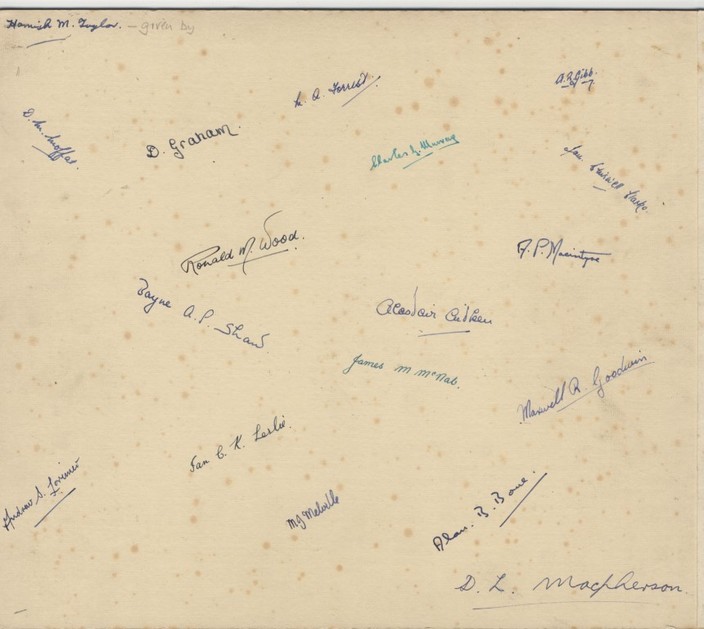 Hamish M. Taylor. – given by
A. R. Gibb.
A. Forrest.
D. M. Moffat.
D. Graham.
Charles G. Murray
Ronald M. Wood.
A. P. Macintyre
Bayne A. P. Shaw
Alasdair Aitken
James M McNab.
Maxwell R. Goodwin
Ian C. K. Leslie.
Andrew S. Lorimer
MJ Melville
Alan. B. Bone.
D. L. Macpherson.